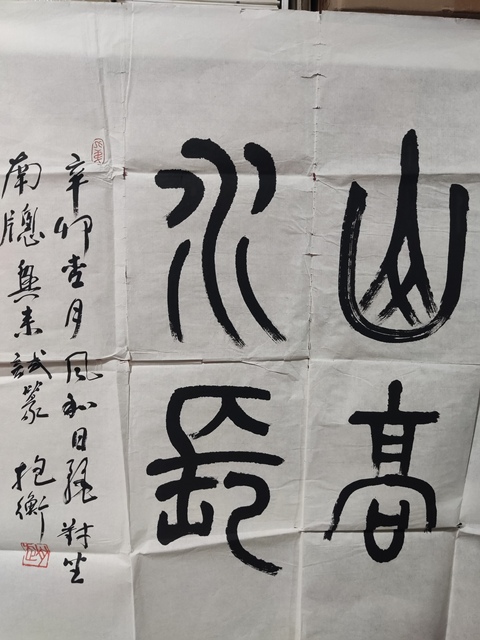 山高
水長
辛卯壹月風和日麗對坐
南牕興來試篆 抱衡